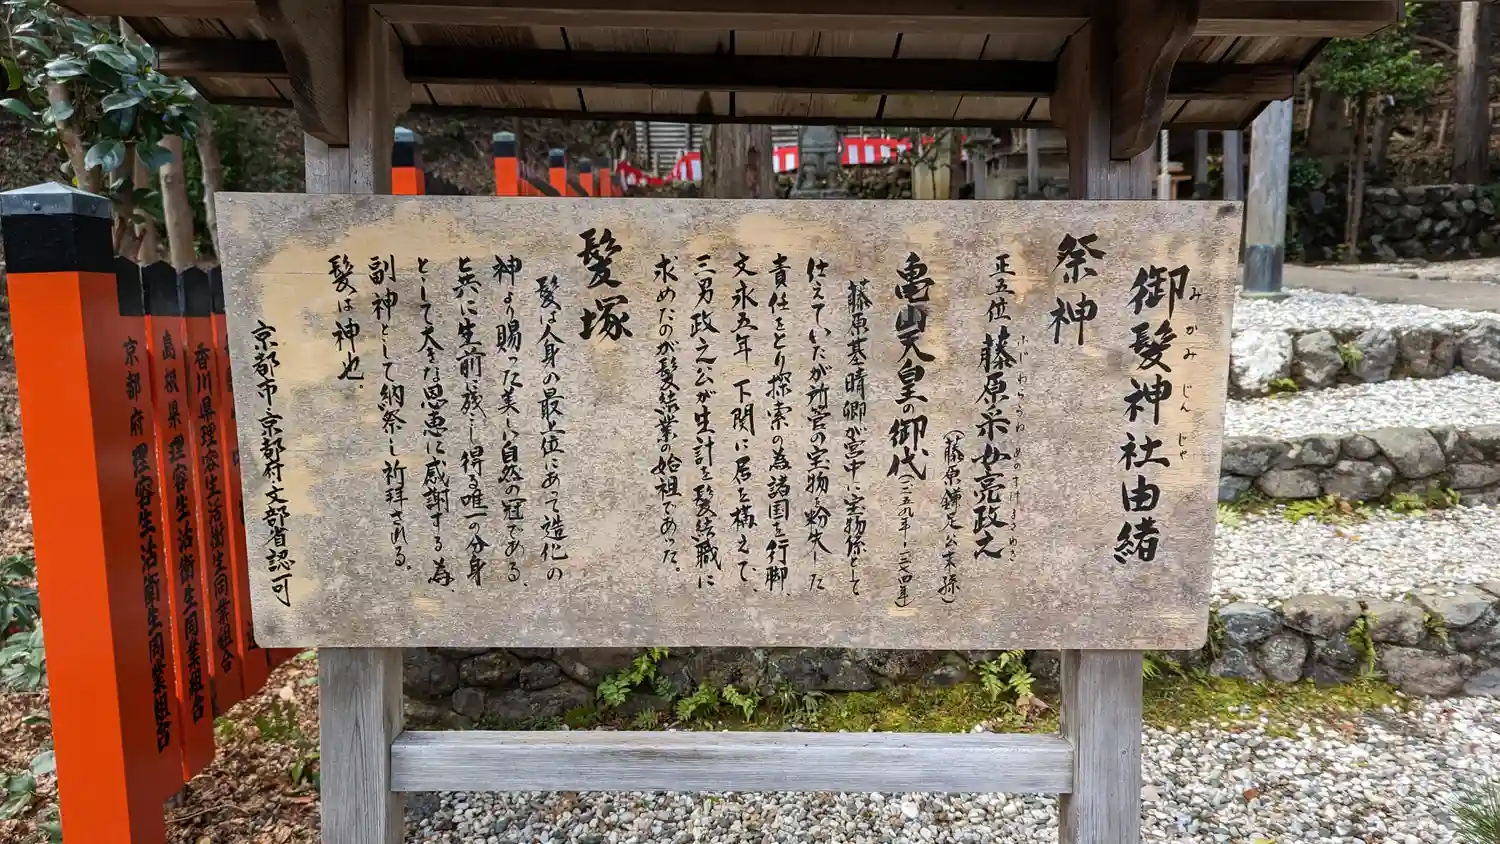 御髪神社由緒
みかみじんじゃ
祭神
正五位 藤原采女亮政之
ふじわらうねめのすけまさゆき
(藤原鎌足公末孫)
亀山天皇の御代(一二五九年・一二七四年)
藤原基晴卿が宮中に宝物係として
仕えていたが所管の宝物を紛失した
責任をとり探索の為諸国を行脚、
文永五年 下関に居を構えて、
三男政之公が生計を髪結職に
求めたのが髪結業の始祖であった。
髪塚
髪は人身の最上位にあって造化の
神より賜った美しい自然の冠である、
と共に生前、残し得る唯一の分身
として大きな恩恵に感謝する為、
副神として納祭し祈拝される。
髪は神也。
京都市 京都府 文部省認可
香川県理容生活衛生同業組合
島根県理容生活衛生同業組合
京都府理容生活衛生同業組合